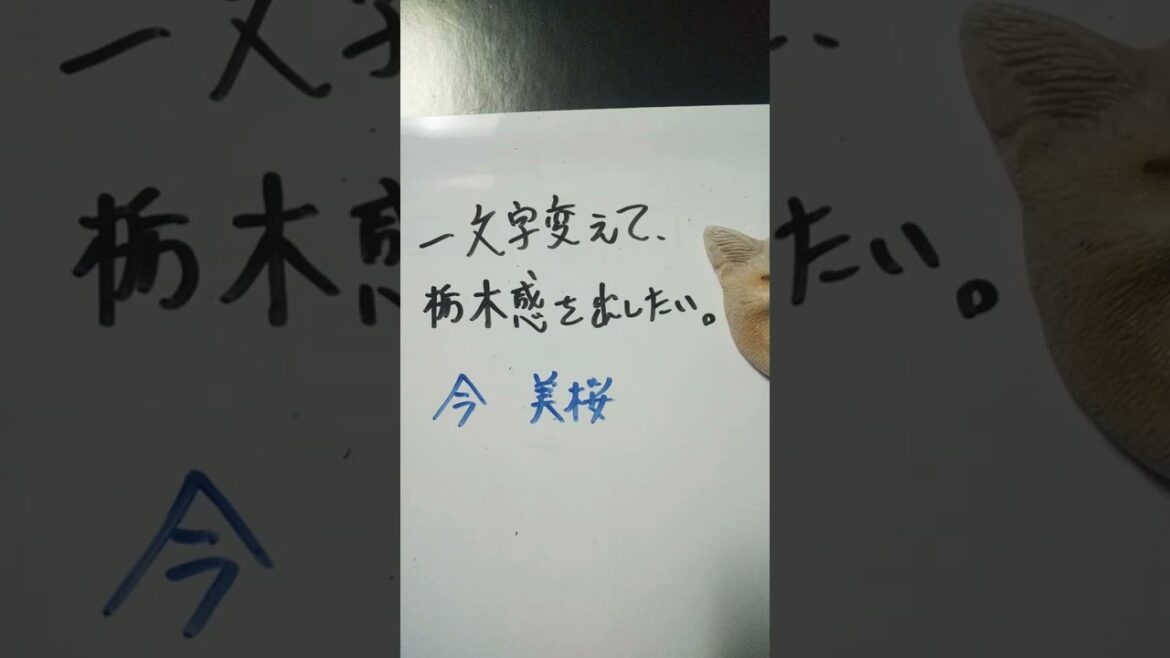 一文字変えて、
栃木感を出したい。
今 美桜